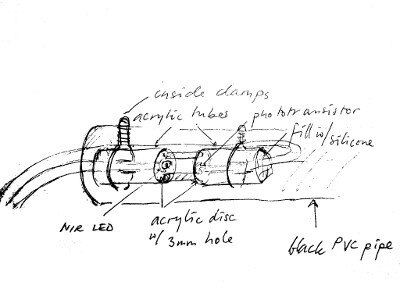 inside clamps
acrylic tubes
phototransistor
fill w/
silicone
NIR LED
acrylic disc
w/ 3mm hole
black PVC pipe